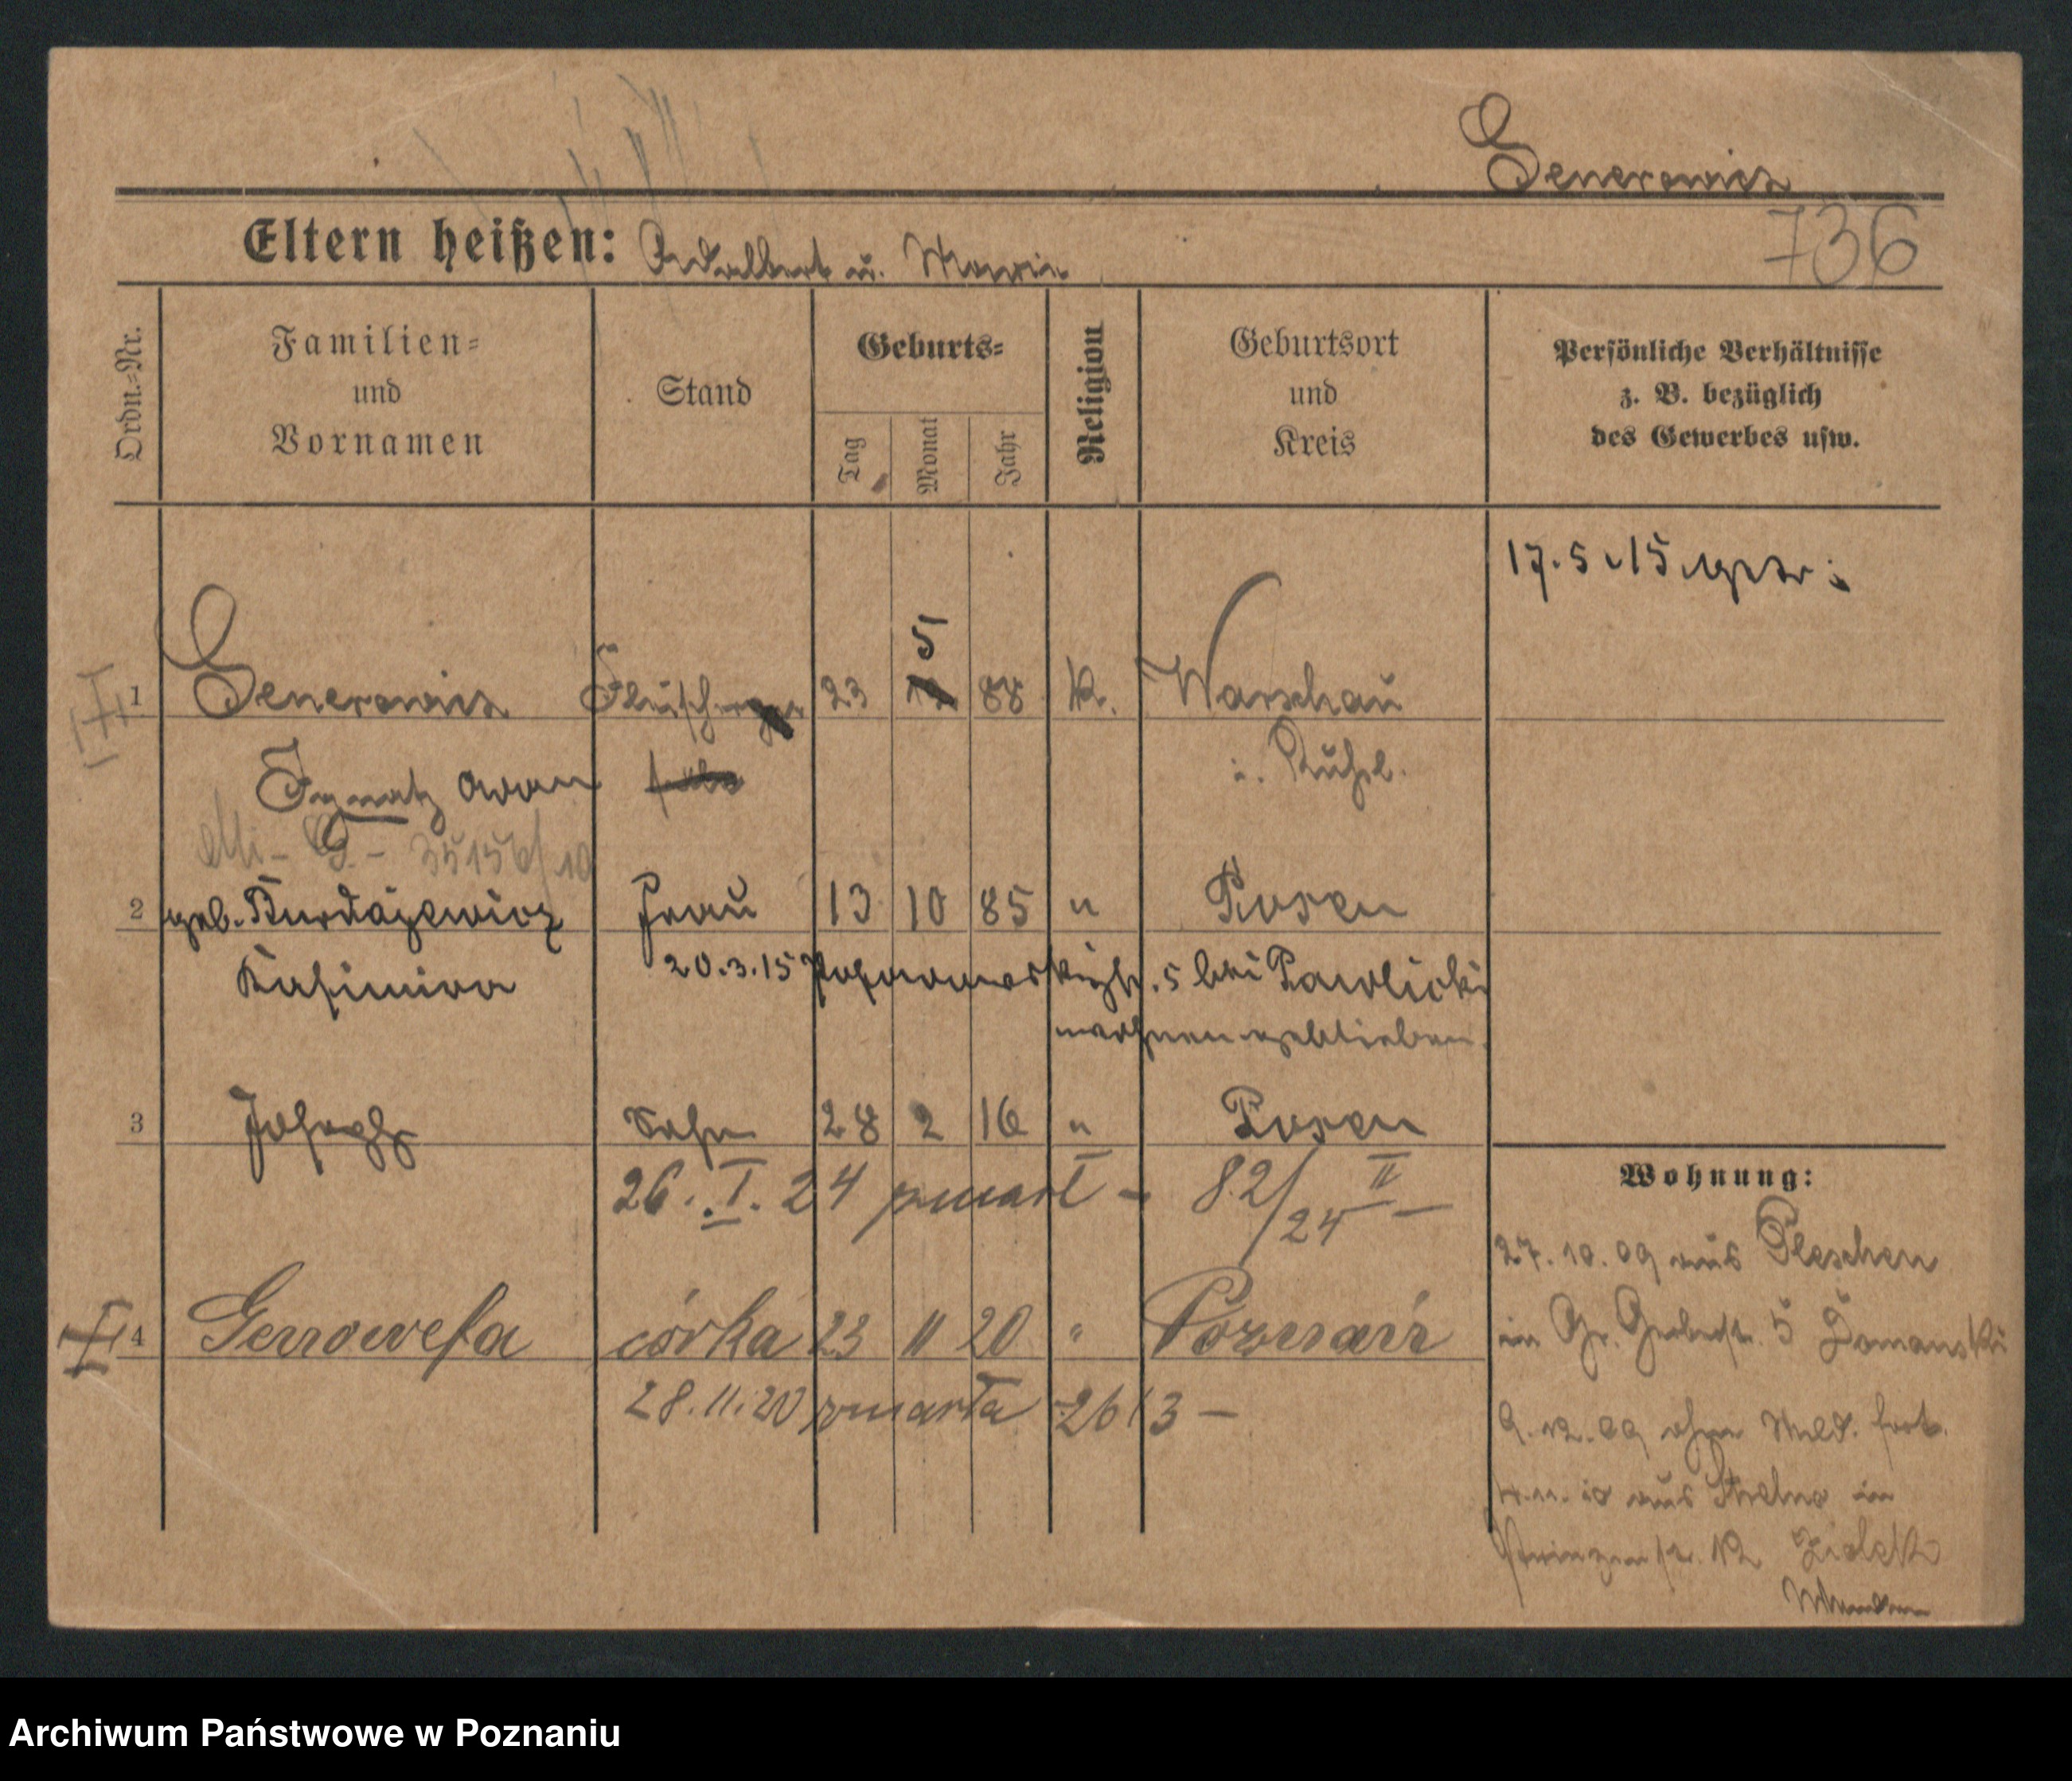 Generowicz
Eltern heißen: Adalbert u. Maria
736
Ordn.-Nr.
Familien-
und
Vornamen
Stand
Geburts-
Tag
Monat
Jahr
Religion
Geburtsort
und
Kreis
Persönliche Verhältnisse
z. B. bezüglich
des Gewerbes usw.
17.5.15
1 Generowicz Fleischer 23 5 88 K. Warschau
Ignatz
i. Rußl.
35156/10
2 geb. Frau 13 10 85 " Posen
Kasimira 20.3.15 5 bei Pawlicki
wohnen geblieben.
3 Joseph Sohn 28 2 16 " Posen
26. I. 24 zmarł - 82/24 II -
4 Genowefa córka 23 11 20 " Poznań
28.11.20 zmarła 2613 -
Wohnung:
27.10.09 aus Pleschen
in Gr. Gerberstr. 5 Domanski
9.12.09 ohne Meld. fort.
4.11.10 aus Strelno in
Prinzenstr. 12
Archiwum Państwowe w Poznaniu